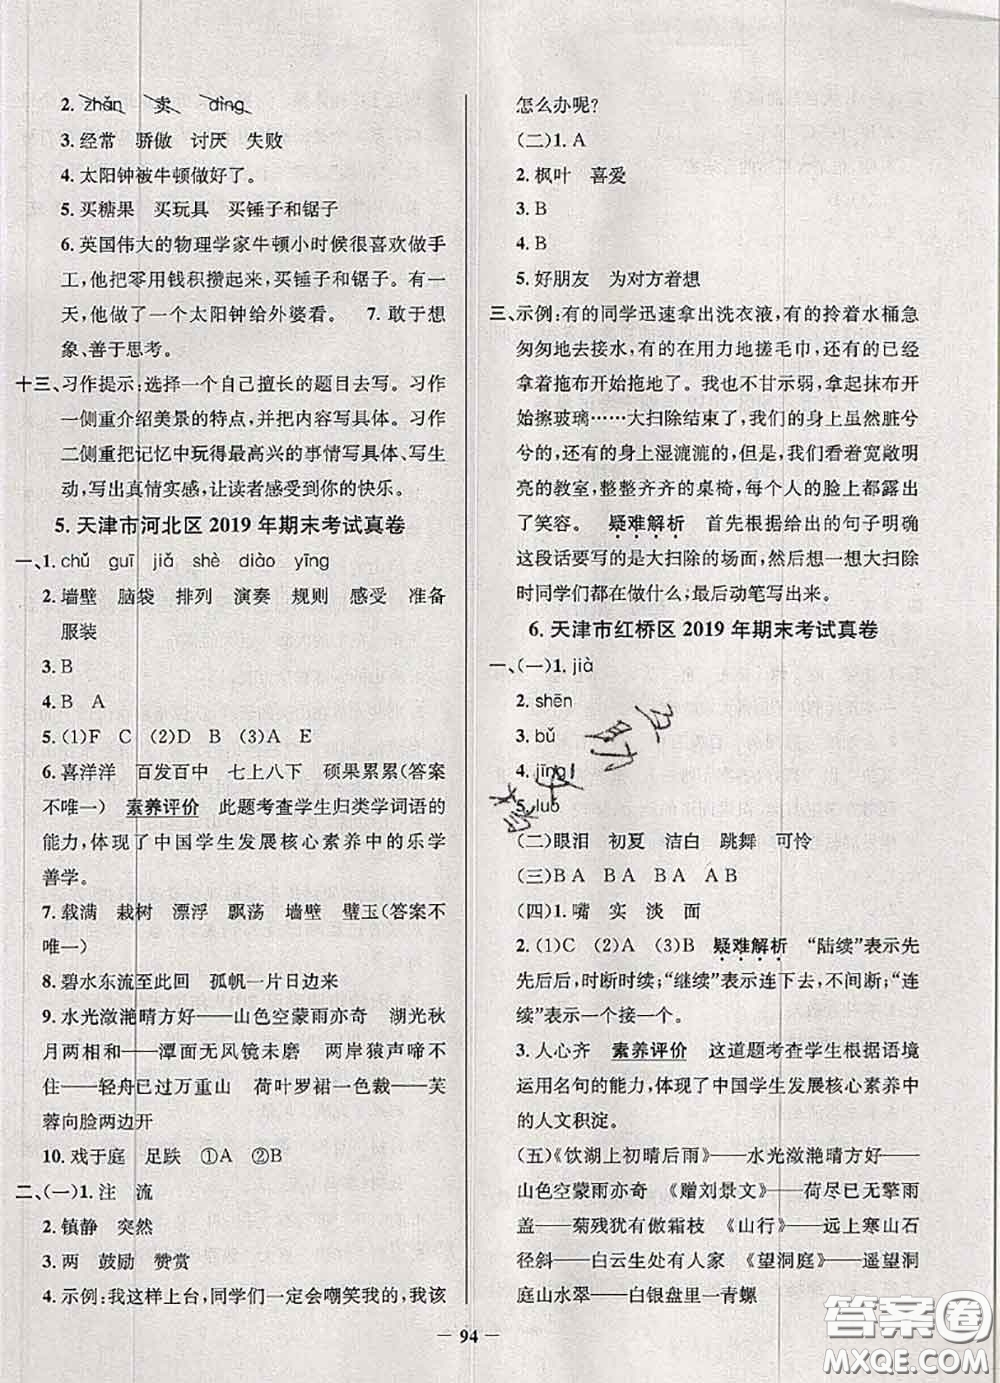 2. zhǎn　卖　dìng
3. 经常　骄傲　讨厌　失败
4. 太阳钟被牛顿做好了。
5. 买糖果　买玩具　买锤子和锯子
6. 英国伟大的物理学家牛顿小时候很喜欢做手
工,他把零用钱积攒起来,买锤子和锯子。有一
天,他做了一个太阳钟给外婆看。　7. 敢于想
象、善于思考。
十三、习作提示:选择一个自己擅长的题目去写。习作
一侧重介绍美景的特点,并把内容写具体。习作
二侧重把记忆中玩得最高兴的事情写具体、写生
动,写出真情实感,让读者感受到你的快乐。
5. 天津市河北区 2019 年期末考试真卷
一、1. chǔ　guī　jiǎ　shè　diào　yīng
2. 墙壁　脑袋　排列　演奏　规则　感受　准备
服装
3. B
4. B　A
5. (1)F　C　(2)D　B　(3)A　E
6. 喜洋洋　百发百中　七上八下　硕果累累(答案
不唯一)　素养评价　此题考查学生归类学词语的
能力,体现了中国学生发展核心素养中的乐学
善学。
7. 载满　栽树　漂浮　飘荡　墙壁　璧玉(答案不
唯一)
8. 碧水东流至此回　孤帆一片日边来
9. 水光潋滟晴方好——山色空蒙雨亦奇　湖光秋
月两相和——潭面无风镜未磨　两岸猿声啼不
住——轻舟已过万重山　荷叶罗裙一色裁——芙
蓉向脸两边开
10. 戏于庭　足跌　①A　②B
二、(一)1. 注　流
2. 镇静　突然
3. 两　鼓励　赞赏
4. 示例:我这样上台,同学们一定会嘲笑我的,我该
怎么办呢?
(二)1. A
2. 枫叶　喜爱
3. B
4. B
5. 好朋友　为对方着想
三、示例:有的同学迅速拿出洗衣液,有的拎着水桶急
匆匆地去接水,有的在用力地搓毛巾,有的已经
拿着拖布开始拖地了。我也不甘示弱,拿起抹布开
始擦玻璃……大扫除结束了,我们的身上虽然脏兮
兮的,我们的身上湿漉漉的,但是,我们看着宽敞明
亮的教室,整整齐齐的桌椅,每个人的脸上都露出
了笑容。　疑难解析　首先根据给出的句子,明确
这段话要写的是大扫除的场面,然后想一想大扫除
时同学们都在做什么,最后动笔写出来。
6. 天津市红桥区 2019 年期末考试真卷
一、(一)1. jià
2. shēn
3. bǔ
4. jīng
5. luó
(二)眼泪　初夏　洁白　跳舞　可怜
(三)BA　BA　AB　AB
(四)1. 嘴　实　淡　面
2. (1)C　(2)A　(3)B　疑难解析　“陆续”表示先
先后后,时断时续;“继续”表示连下去,不间断;“连
续”表示一个接一个。
3. 人心齐　素养评价　这道题考查学生根据语境
运用名句的能力,体现了中国学生发展核心素养中
的人文积淀。
(五)《饮湖上初晴后雨》——水光潋滟晴方好——
山色空蒙雨亦奇　《赠刘景文》——荷尽已无擎雨
盖——菊残犹有傲霜枝　《山行》——远上寒山石
径斜——白云生处有人家　《望洞庭》——遥望洞
庭山水翠——白银盘里一青螺
— 94 —
答案卷
MXQE.COM